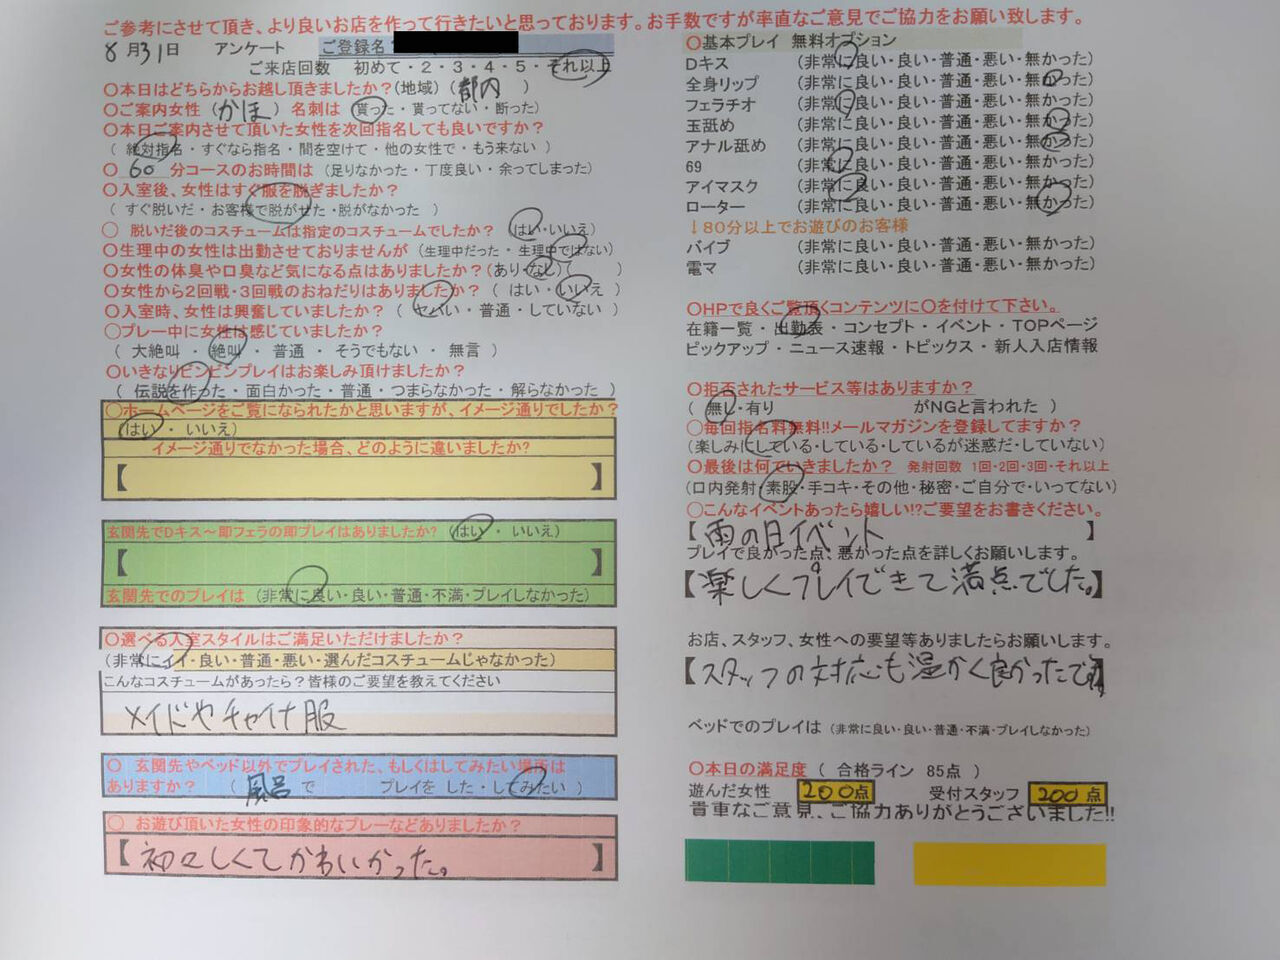 ご参考にさせて頂き、より良いお店を作って行きたいと思っております。お手数ですが率直なご意見でご協力をお願い致します。
8月31日 アンケート ご登録名
ご来店回数 初めて・2・3・4・5・それ以上
〇本日はどちらからお越し頂きましたか?(地域)(都内 )
〇ご案内女性 (かほ) 名刺は(貰った・貰ってない・断った)
〇本日ご案内させて頂いた女性を次回指名しても良いですか?
( 絶対指名・すぐなら指名・間を空けて・他の女性で・もう来ない )
〇 60 分コースのお時間は (足りなかった・丁度良い・余ってしまった)
〇入室後、女性はすぐ服を脱ぎましたか?
( すぐ脱いだ・お客様で脱がせた・脱がなかった )
〇 脱いだ後のコスチュームは指定のコスチュームでしたか? (はい・いいえ)
〇生理中の女性は出勤させておりませんが (生理中だった・生理中ではない)
〇女性の体臭や口臭など気になる点はありましたか?(あり・なし)( )
〇女性から2回戦・3回戦のおねだりはありましたか? ( はい・いいえ )
〇入室時、女性は興奮していましたか? ( ヤバい・普通・していない )
〇プレー中に女性は感じていましたか?
( 大絶叫・絶叫・普通・そうでもない・無言 )
〇いきなりビンビンプレイはお楽しみ頂けましたか?
( 伝説を作った・面白かった・普通・つまらなかった・解らなかった )
〇ホームページをご覧になられたかと思いますが、イメージ通りでしたか?
(はい・いいえ)
イメージ通りでなかった場合、どのように違いましたか?
【 】
玄関先でDキス～即フェラの即プレイはありましたか? (はい・いいえ)
【 】
玄関先でのプレイは (非常に良い・良い・普通・不満・プレイしなかった)
〇選べる入室スタイルはご満足いただけましたか?
(非常にイイ・良い・普通・悪い・選んだコスチュームじゃなかった)
こんなコスチュームがあったら?皆様のご要望を教えてください
メイドやチャイナ服
〇 玄関先やベッド以外でプレイされた、もしくはしてみたい場所は
ありますか? ( 風呂 で プレイを した・してみたい )
〇 お遊び頂いた女性の印象的なプレーなどありましたか?
【初々しくてかわいかった。】
〇基本プレイ 無料オプション
Dキス (非常に良い・良い・普通・悪い・無かった)
全身リップ (非常に良い・良い・普通・悪い・無かった)
フェラチオ (非常に良い・良い・普通・悪い・無かった)
玉舐め (非常に良い・良い・普通・悪い・無かった)
アナル舐め (非常に良い・良い・普通・悪い・無かった)
69 (非常に良い・良い・普通・悪い・無かった)
アイマスク (非常に良い・良い・普通・悪い・無かった)
ローター (非常に良い・良い・普通・悪い・無かった)
↓80分以上でお遊びのお客様
バイブ (非常に良い・良い・普通・悪い・無かった)
電マ (非常に良い・良い・普通・悪い・無かった)
〇HPで良くご覧頂くコンテンツに〇を付けて下さい。
在籍一覧・出勤表・コンセプト・イベント・TOPページ
ピックアップ・ニュース速報・トピックス・新人入店情報
〇拒否されたサービス等はありますか?
( 無し・有り がNGと言われた )
〇毎回指名料無料!!メールマガジンを登録してますか?
(楽しみにしている・している・しているが迷惑だ・していない)
〇最後は何でいきましたか? 発射回数 1回・2回・3回・それ以上
(口内発射・素股・手コキ・その他・秘密・ご自分で・いってない)
〇こんなイベントあったら嬉しい!?ご要望をお書きください。
【雨の日イベント 】
プレイで良かった点、悪かった点を詳しくお願いします。
【楽しくプレイできて満点でした。】
お店、スタッフ、女性への要望等ありましたらお願いします。
【スタッフの対応も温かく良かったです。】
ベッドでのプレイは (非常に良い・良い・普通・不満・プレイしなかった)
〇本日の満足度 ( 合格ライン 85点 )
遊んだ女性 200点 受付スタッフ 200点
貴重なご意見、ご協力ありがとうございました!!